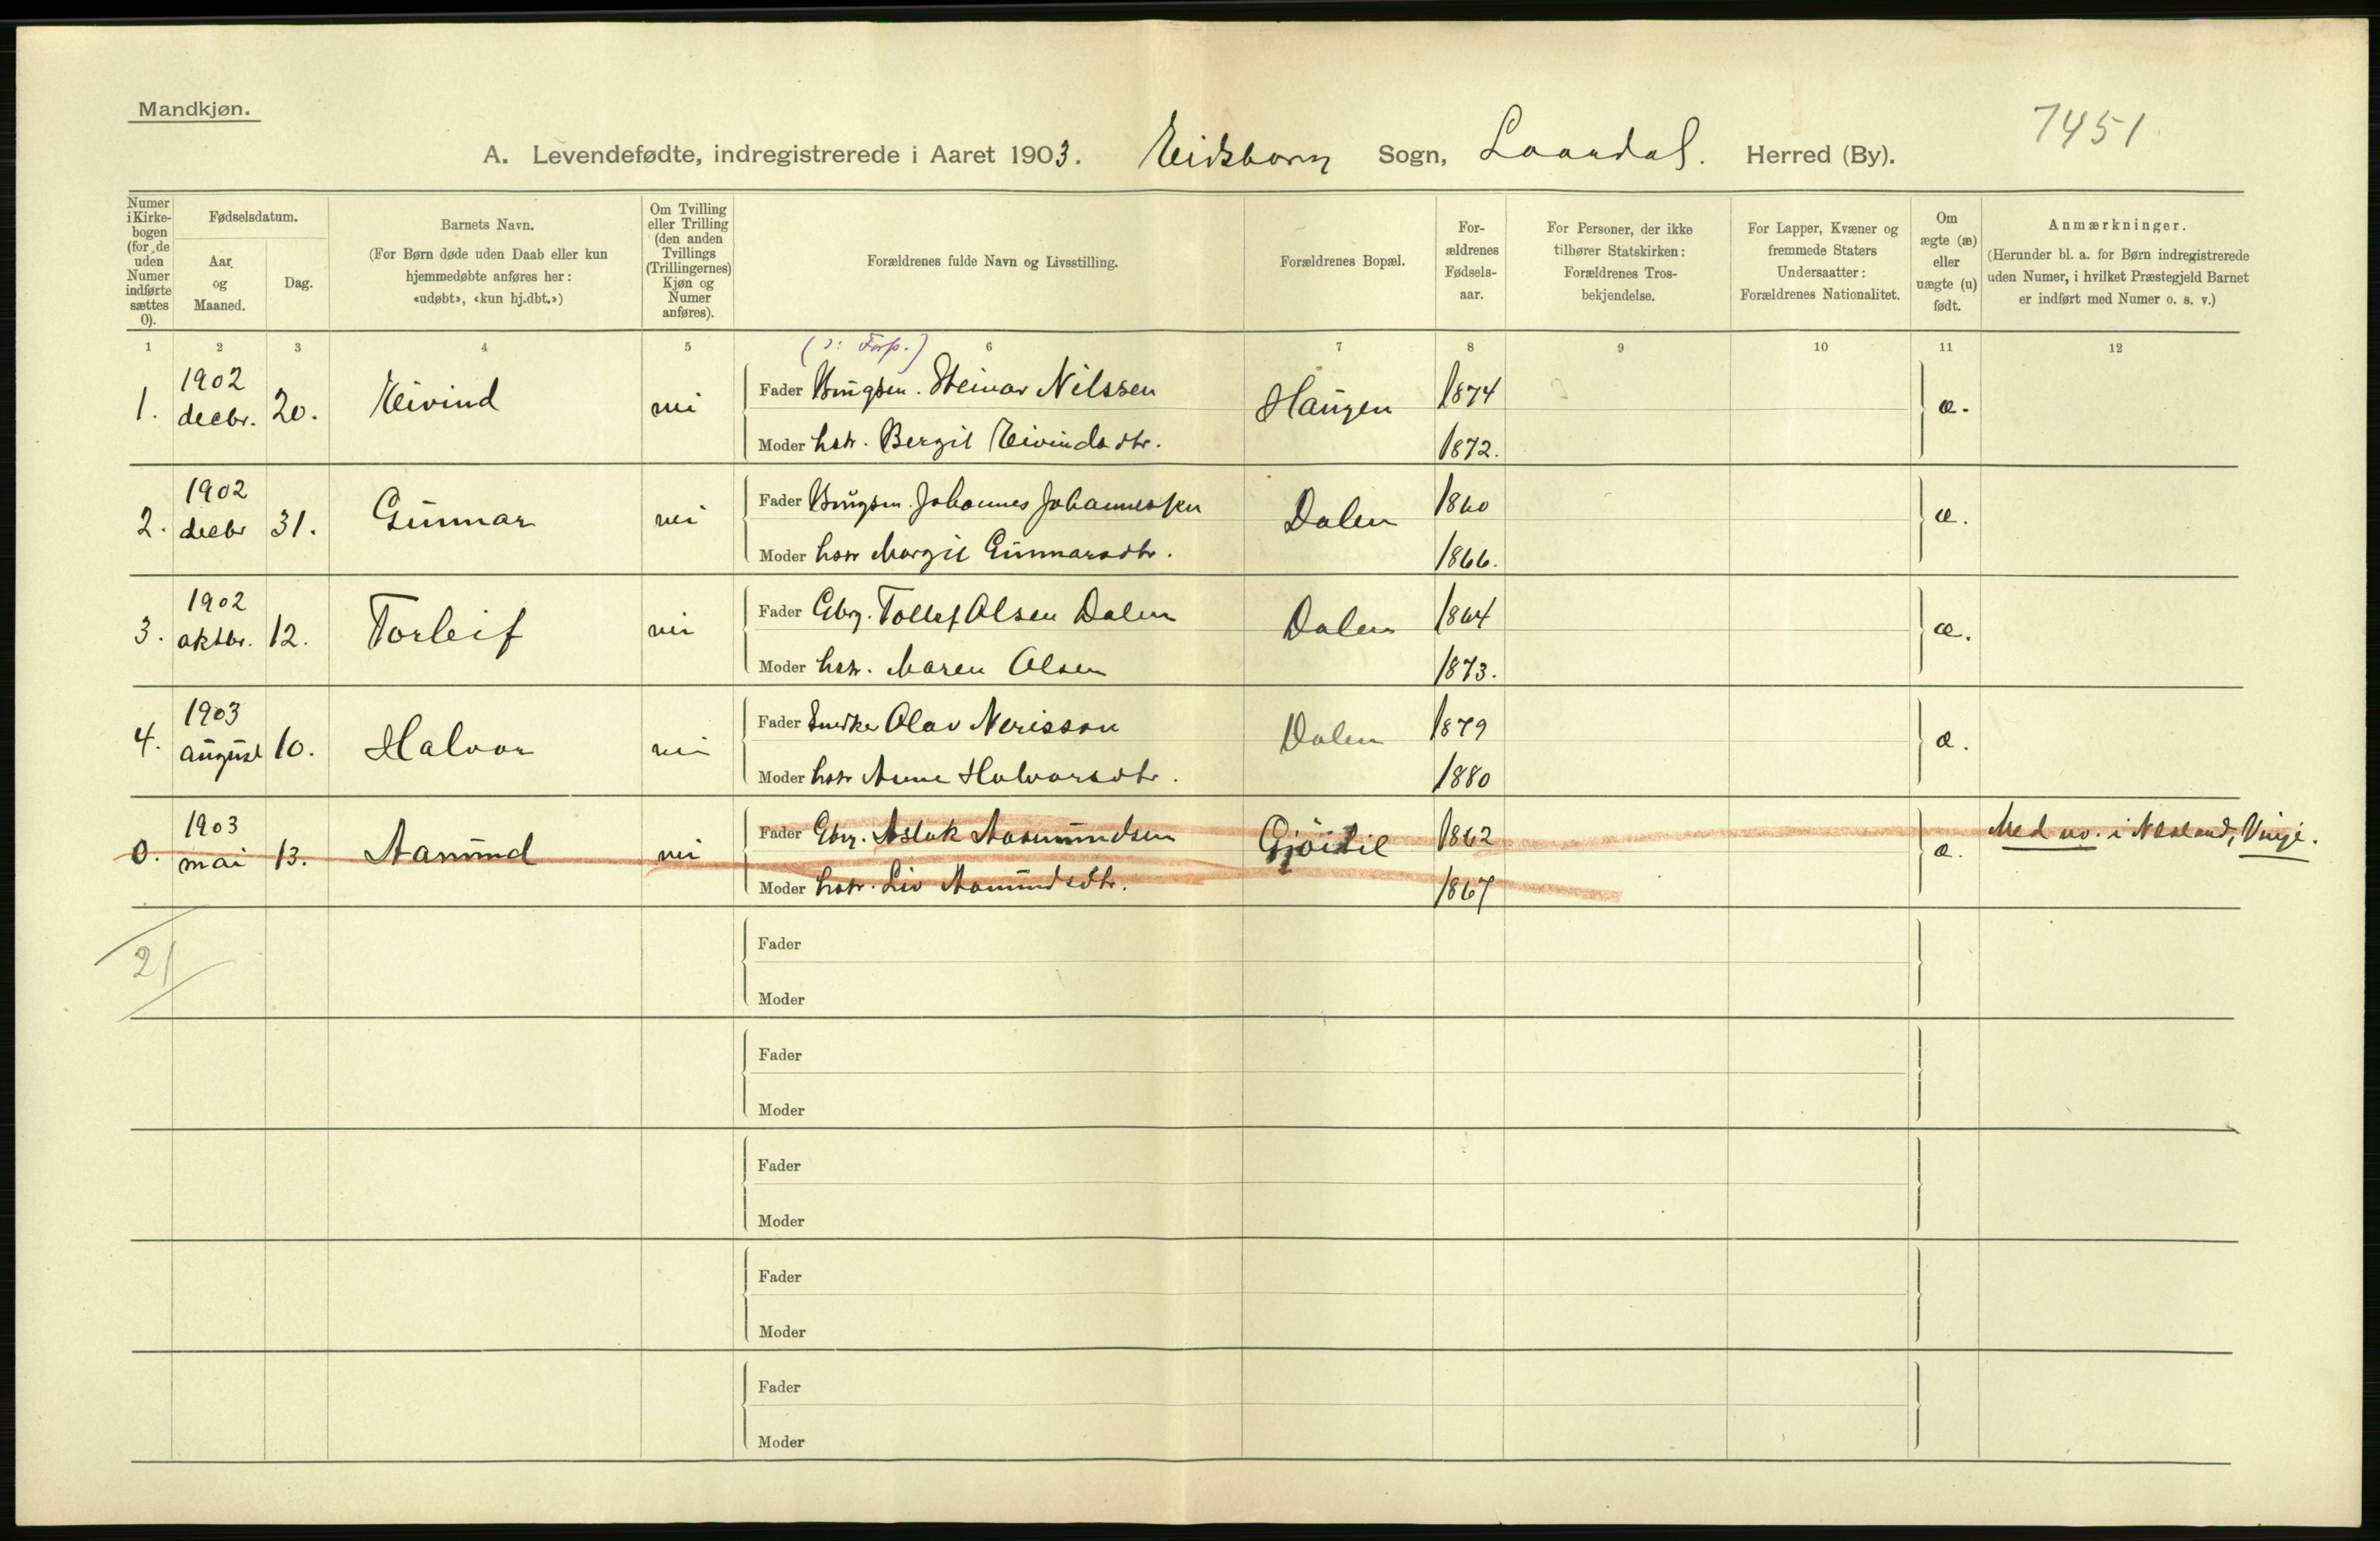 Mandkjøn.
7451
A. Levendefødte, indregistrerede i Aaret 1903. Eidsborg Sogn, Laardal. Herred (By).
Numer i Kirkebogen (for de uden Numer indførte sættes 0).
Fødselsdatum.
Aar og Maaned.
Dag.
Barnets Navn.
(For Børn døde uden Daab eller kun hjemmedøbte anføres her: «udøbt», «kun hj.dbt.»)
Om Tvilling eller Trilling (den anden Tvillings (Trillingernes) Kjøn og Numer anføres).
Forældrenes fulde Navn og Livsstilling.
Forældrenes Bopæl.
Forældrenes Fødselsaar.
For Personer, der ikke tilhører Statskirken: Forældrenes Trosbekjendelse.
For Lapper, Kvæner og fremmede Staters Undersaatter: Forældrenes Nationalitet.
Om ægte (æ) eller uægte (u) født.
Anmærkninger.
(Herunder bl. a. for Børn indregistrerede uden Numer, i hvilket Præstegjeld Barnet er indført med Numer o. s. v.)
1 2 3 4 5 6 7 8 9 10 11 12
(ɔ: Forp.)
1. 1902 decbr. 20. Eivind nei Fader Brugsm. Steinar Nilssen Haugen 1874 æ.
Moder hstr. Bergit Eivindsdtr. 1872.
2. 1902 decbr 31. Gunnar nei Fader Brugsm. Johannes Johannessen Dalen 1860 æ.
Moder hstr Margit Gunnarsdtr. 1866.
3. 1902 oktbr. 12. Torleif nei Fader Gbrg. Tollef Olsen Dalen Dalen 1864 æ.
Moder hstr. Maren Olsen 1873.
4. 1903 august 10. Halvor nei Fader Snedker Olav Nerisson Dalen 1879 æ.
Moder hstr Anne Halvorsdtr. 1880
0. 1903 mai 13. Aamund nei Fader Gbrg. Aslak Aasmundsen 1862 æ. Med no. i Næsland, Vinje.
Moder hstr. Liv Aamundsdtr. 1867
21
Fader
Moder
Fader
Moder
Fader
Moder
Fader
Moder
Fader
Moder